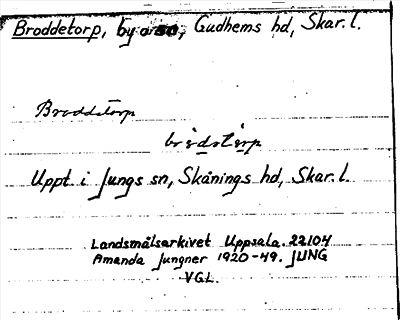 Broddetorp, by o sn, Gudhems hd, Skar. l.
Broddetorp
Uppt. i Jungs sn, Skånings hd, Skar. l.
Landsmålsarkivet Uppsala. 22104
Amanda Jungner 1920-49. JUNG
VGL.